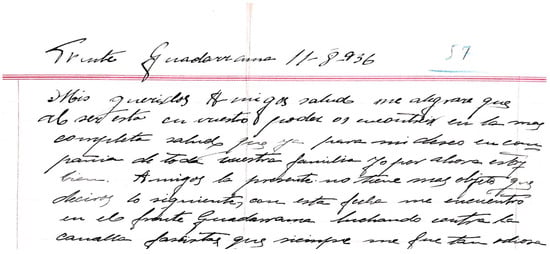 Frente Guadarrama 11-8-936
57
Mis queridos Amigos salud me alegrare que
al ser esta en vuestro poder os encontreis en la mas
completa salud que yo para mi deseo en com
pañia de toda vuestra familia Yo por ahora estoy
bien. Amigos la presente no tiene mas objeto que
deciros lo siguiente, con esta fecha me encuentro
en el frente Guadarrama luchando contra la
canalla fascistas que siempre me fue tan odiosa